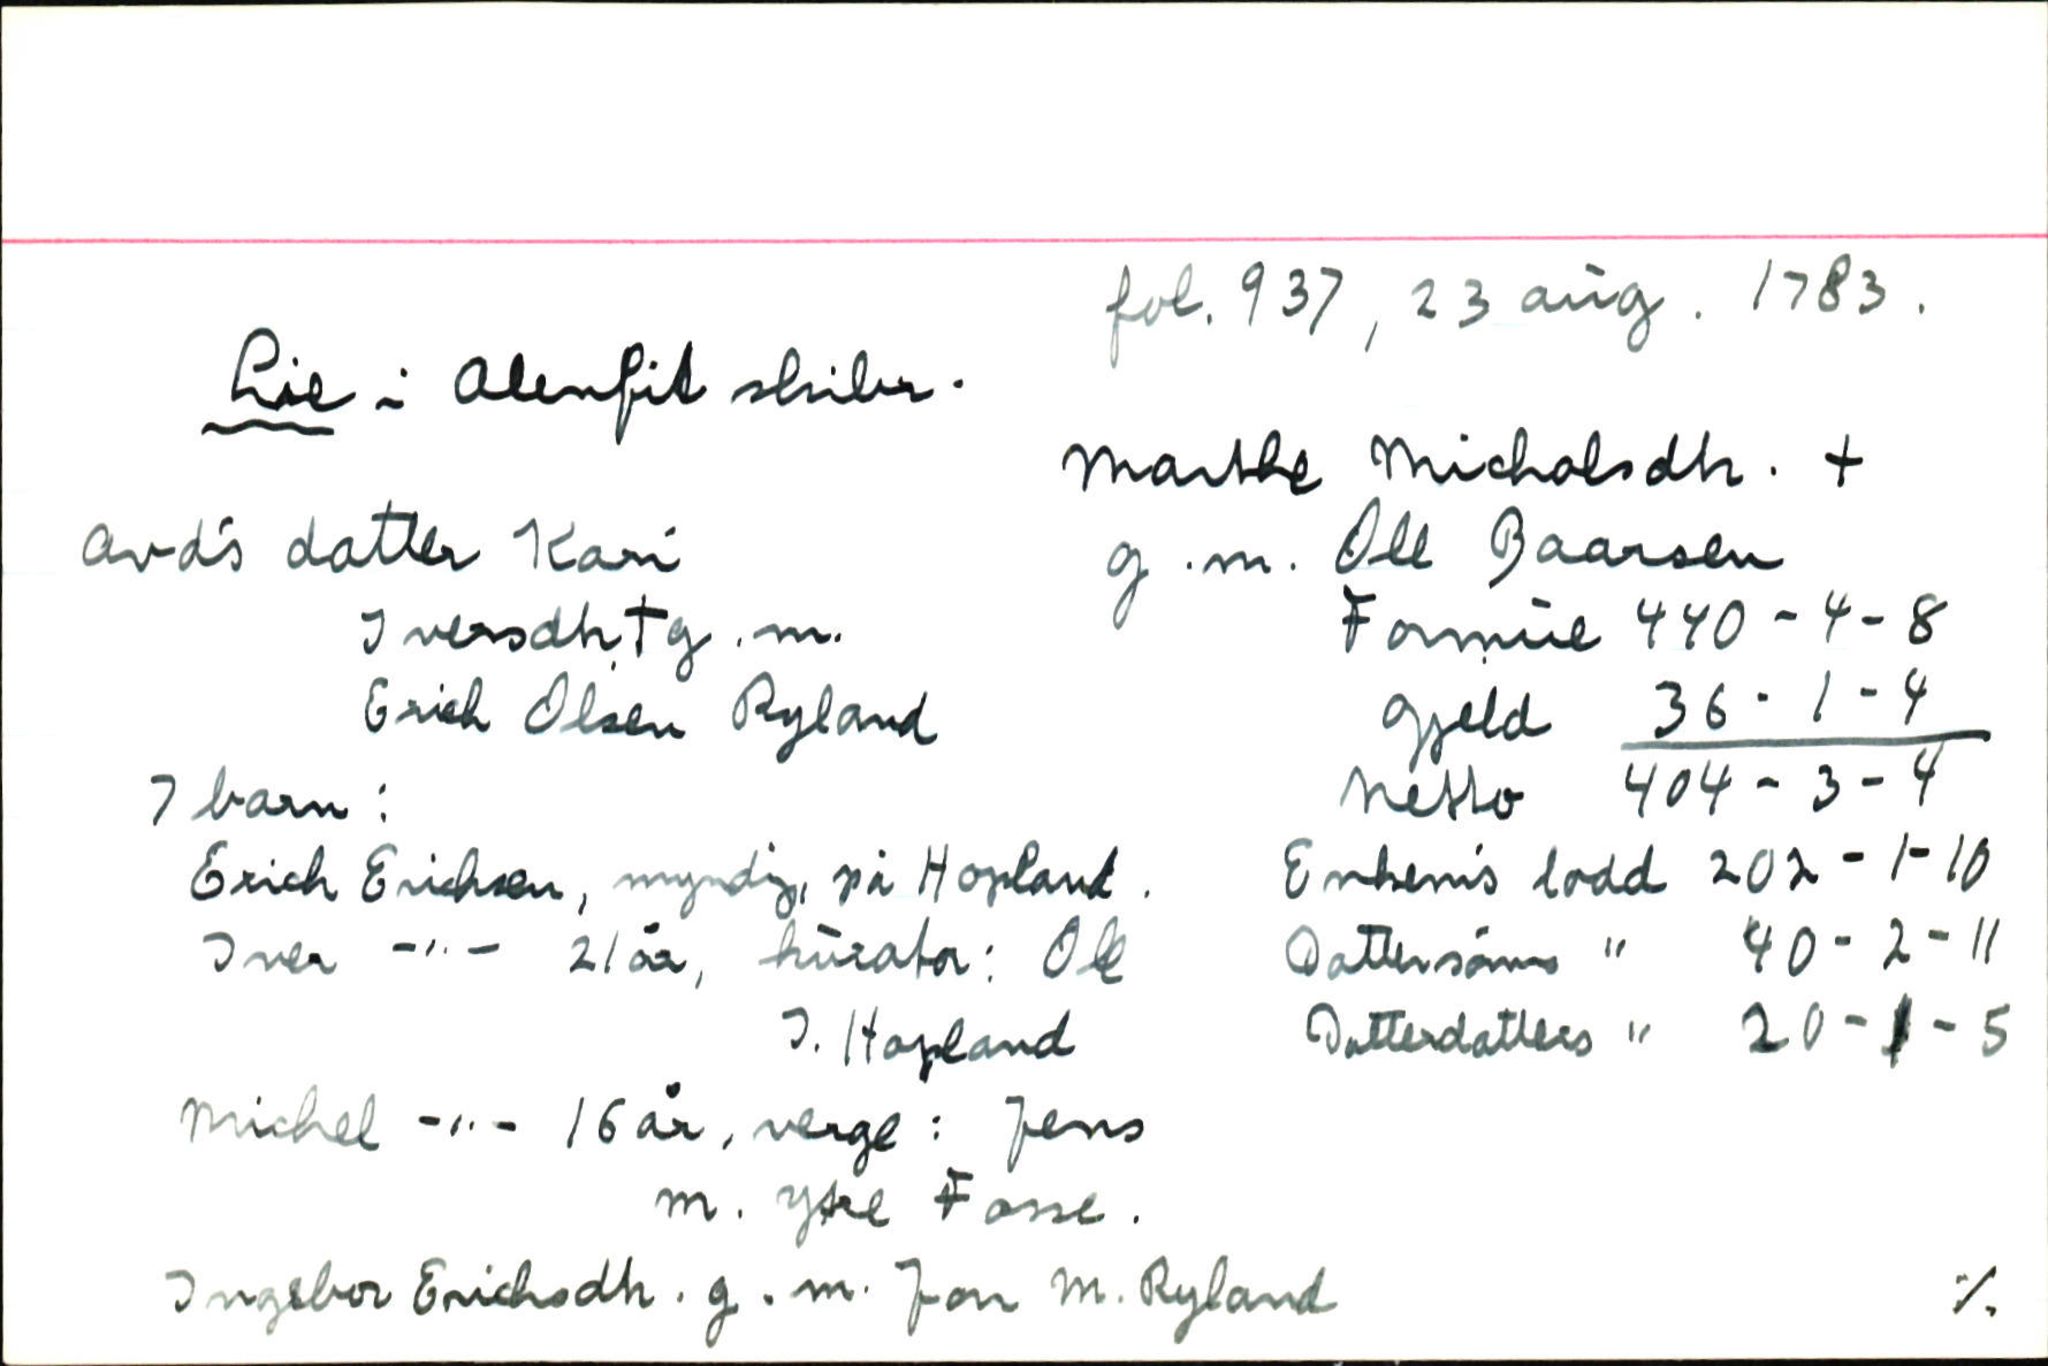 fol. 937, 23 aug. 1783.
Lie i Alenfit skibr.
Marthe Michelsdtr. +
g.m. Ole Baarsen
Formue 440 - 4 - 8
Gjeld 36 - 1 - 4
Netto 404 - 3 - 4
Enkem's lodd 202 - 1 - 10
Dattersøns " 40 - 2 - 11
Datterdatters " 20 - 1 - 5
Avd's datter Kari
Iversdtr † g.m.
Erich Olsen Ryland
7 barn:
Erich Erichsen, myndig, på Hopland.
Iver -"- 21 år, kurator: Ole
I. Hopland
Michel -"- 16 år, verge: Jens
M. Ytre Fosse.
Ingebor Erichsdtr. g.m. Jon M. Ryland
⁒